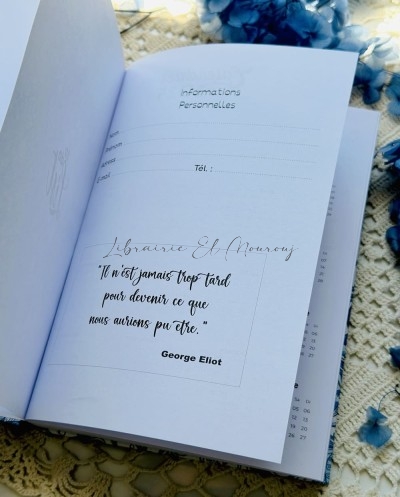 Informations
Personnelles
Nom
Prénom
Adresse
E-mail
Tél. :
Librairie El Mourouj
"Il n'est jamais trop tard
pour devenir ce que
nous aurions pu etre."
George Eliot